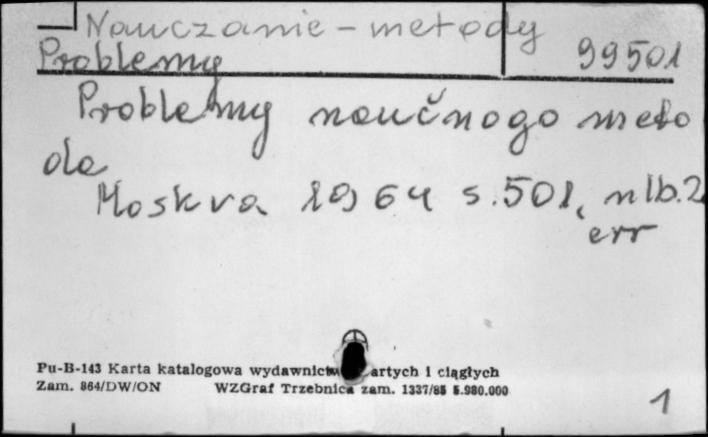 Nauczanie - metody
Problemy 99501
Problemy naučnogo meto
da
Moskva 1964 s. 501, nlb. 2
err
Pu-B-143 Karta katalogowa wydawnictw artych i ciągłych
Zam. 864/DW/ON WZGraf Trzebnica zam. 1337/85 5.980.000
1